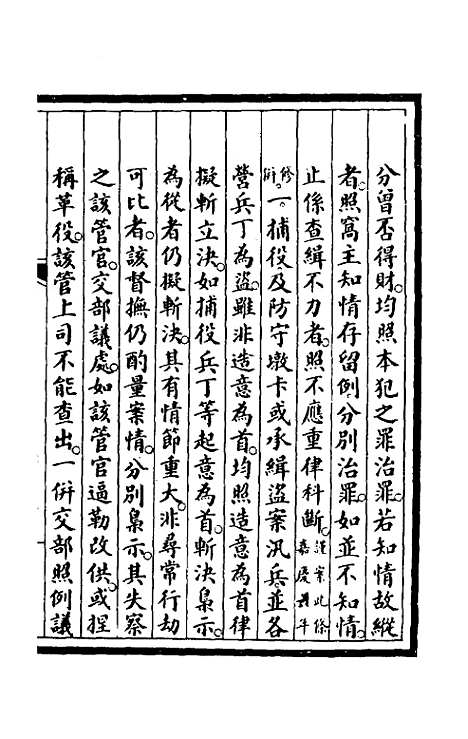 分曾否得財均照本犯之罪治罪若知情故縱
者照窩主知情存留例分別治罪如並不知情
止係查緝不力者照不應重律科斷謹案此條嘉慶年
修併一捕役及防守墩卡或承緝盜案汛兵並各
營兵丁為盜雖非造意為首均照造意為首律
擬斬立決如捕役兵丁等起意為首斬決梟示
為從者仍擬斬決其有情節重大非尋常行劫
可比者該督撫仍酌量案情分別梟示其失察
之該管官交部議處如該管官逼勒改供或捏
稱革役該管上司不能查出一併交部照例議